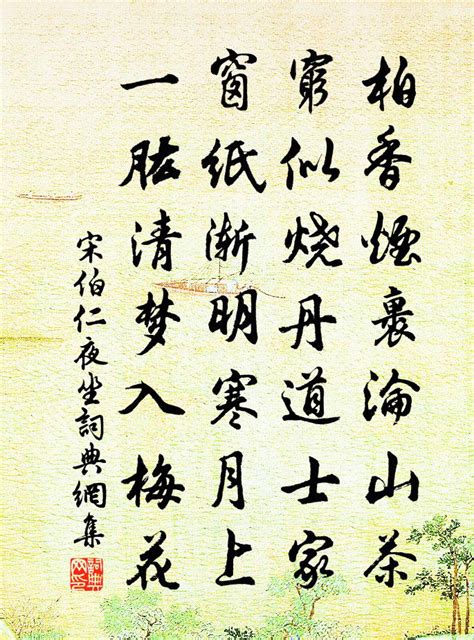 柏香煙裹淪山茶
窮似燒丹道士家
窗紙渐明寒月上
一肱清梦入梅花
宋伯仁夜坐詞典網集
詞典网印